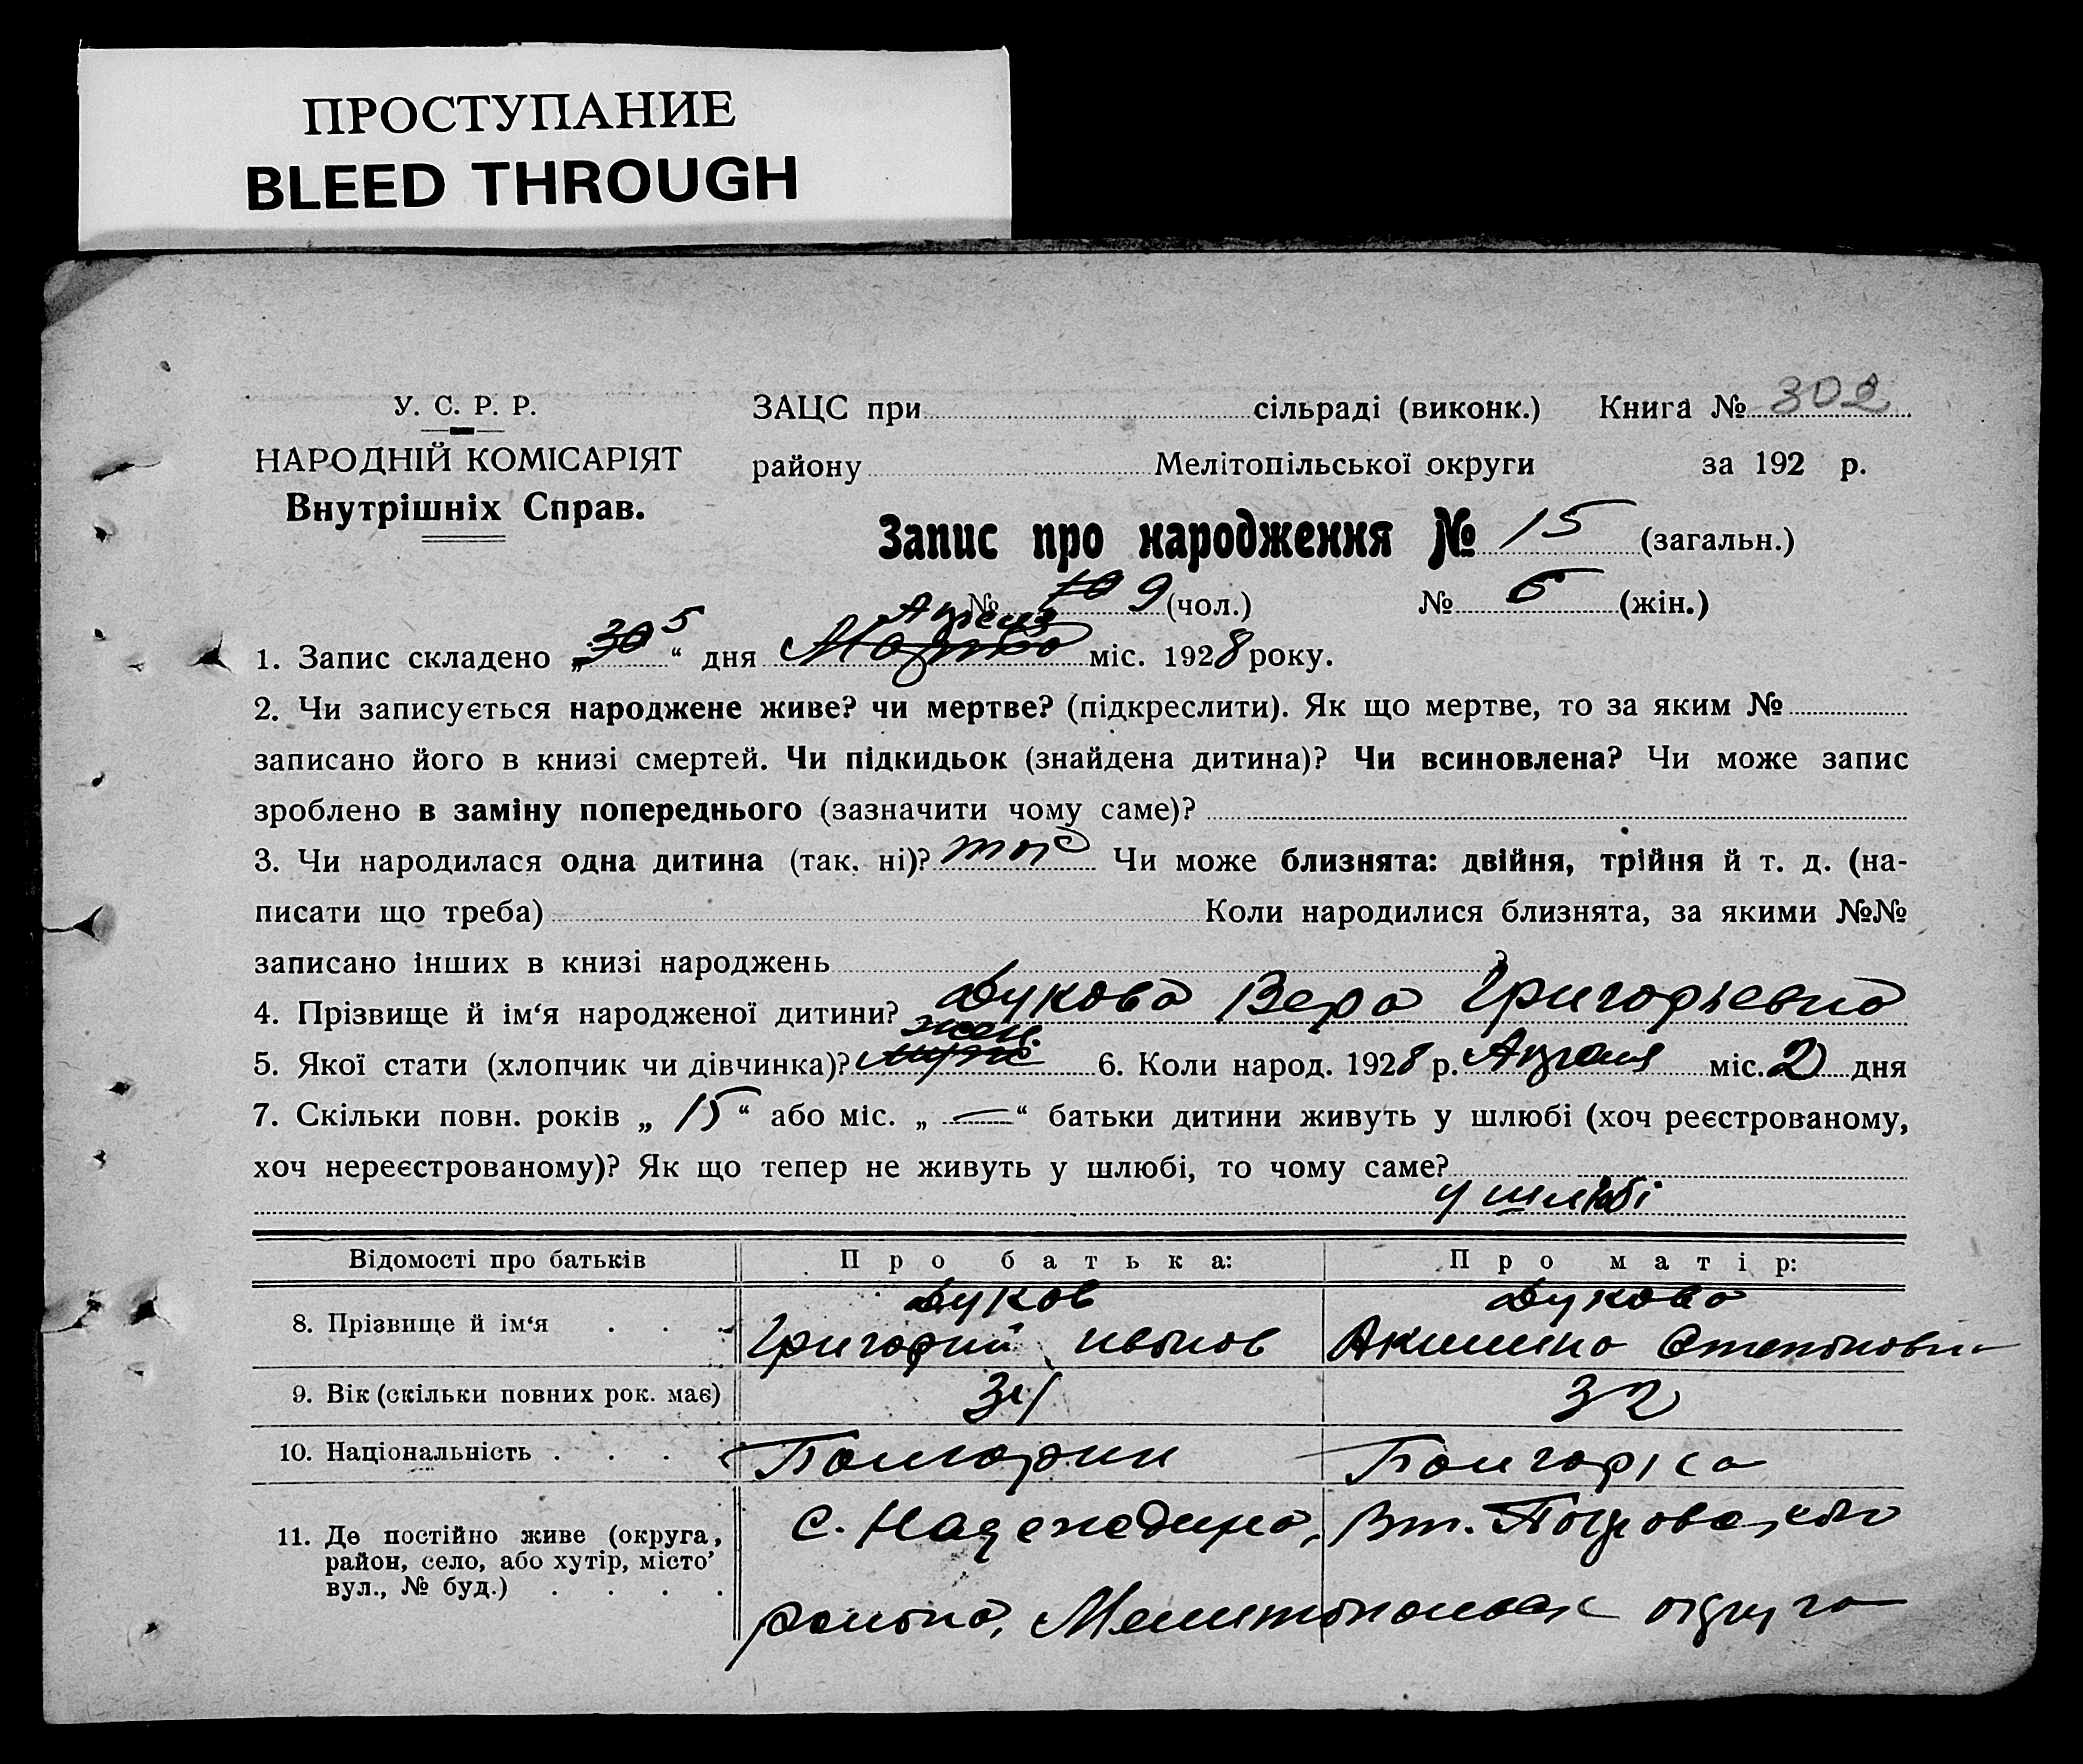 ПРОСТУПАНИЕ
BLEED THROUGH
У. С. Р. Р.
НАРОДНІЙ КОМІСАРІЯТ
Внутрішніх Справ.
ЗАЦС при сільраді (виконк.) Книга № 302
району Мелітопільської округи за 192 р.
Запис про народження № 15 (загальн.)
№ 10 9 (чол.) № 6 (жін.)
Апреля
1. Запис складено „30 5“ дня Марта міс. 1928 року.
2. Чи записується народжене живе? чи мертве? (підкреслити). Як що мертве, то за яким №
записано його в книзі смертей. Чи підкидьок (знайдена дитина)? Чи всиновлена? Чи може запис
зроблено в заміну попереднього (зазначити чому саме)?
3. Чи народилася одна дитина (так, ні)? так Чи може близнята: двійня, трійня й т. д. (на-
писати що треба) Коли народилися близнята, за якими №№
записано інших в книзі народжень ?
4. Прізвище й ім‘я народженої дитини? Дукова Вера Григорьевна
жен.
5. Якої стати (хлопчик чи дівчинка)? 6. Коли народ. 1928 р. Апреля міс. 2 дня
7. Скільки повн. років „ 15 “ або міс. „ — “ батьки дитини живуть у шлюбі (хоч реєстрованому,
хоч нереєстрованому)? Як що тепер не живуть у шлюбі, то чому саме?
у шлюбі
Відомості про батьків Про батька: Про матір:
Дуков Дукова
8. Прізвище й ім‘я . . . Григорий Иванов Акилина Степановна
9. Вік (скільки повних рок. має) 34 32
10. Національність . . . . Болгарин Болгарка
11. Де постійно живе (округа, район, село, або хутір, місто’ вул., № буд.) . . . . с. Надеждино, Вт. Покровского
района, Мелитопольск округа